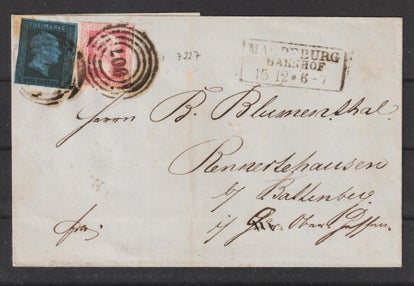 FREIMARKE
907
7227
MAGDEBURG
BAHNHOF
15 12 * 6-7
Herrn B. Blumenthal
Rennertehausen
b/ Battenberg
i/ Ober Hessen
frei